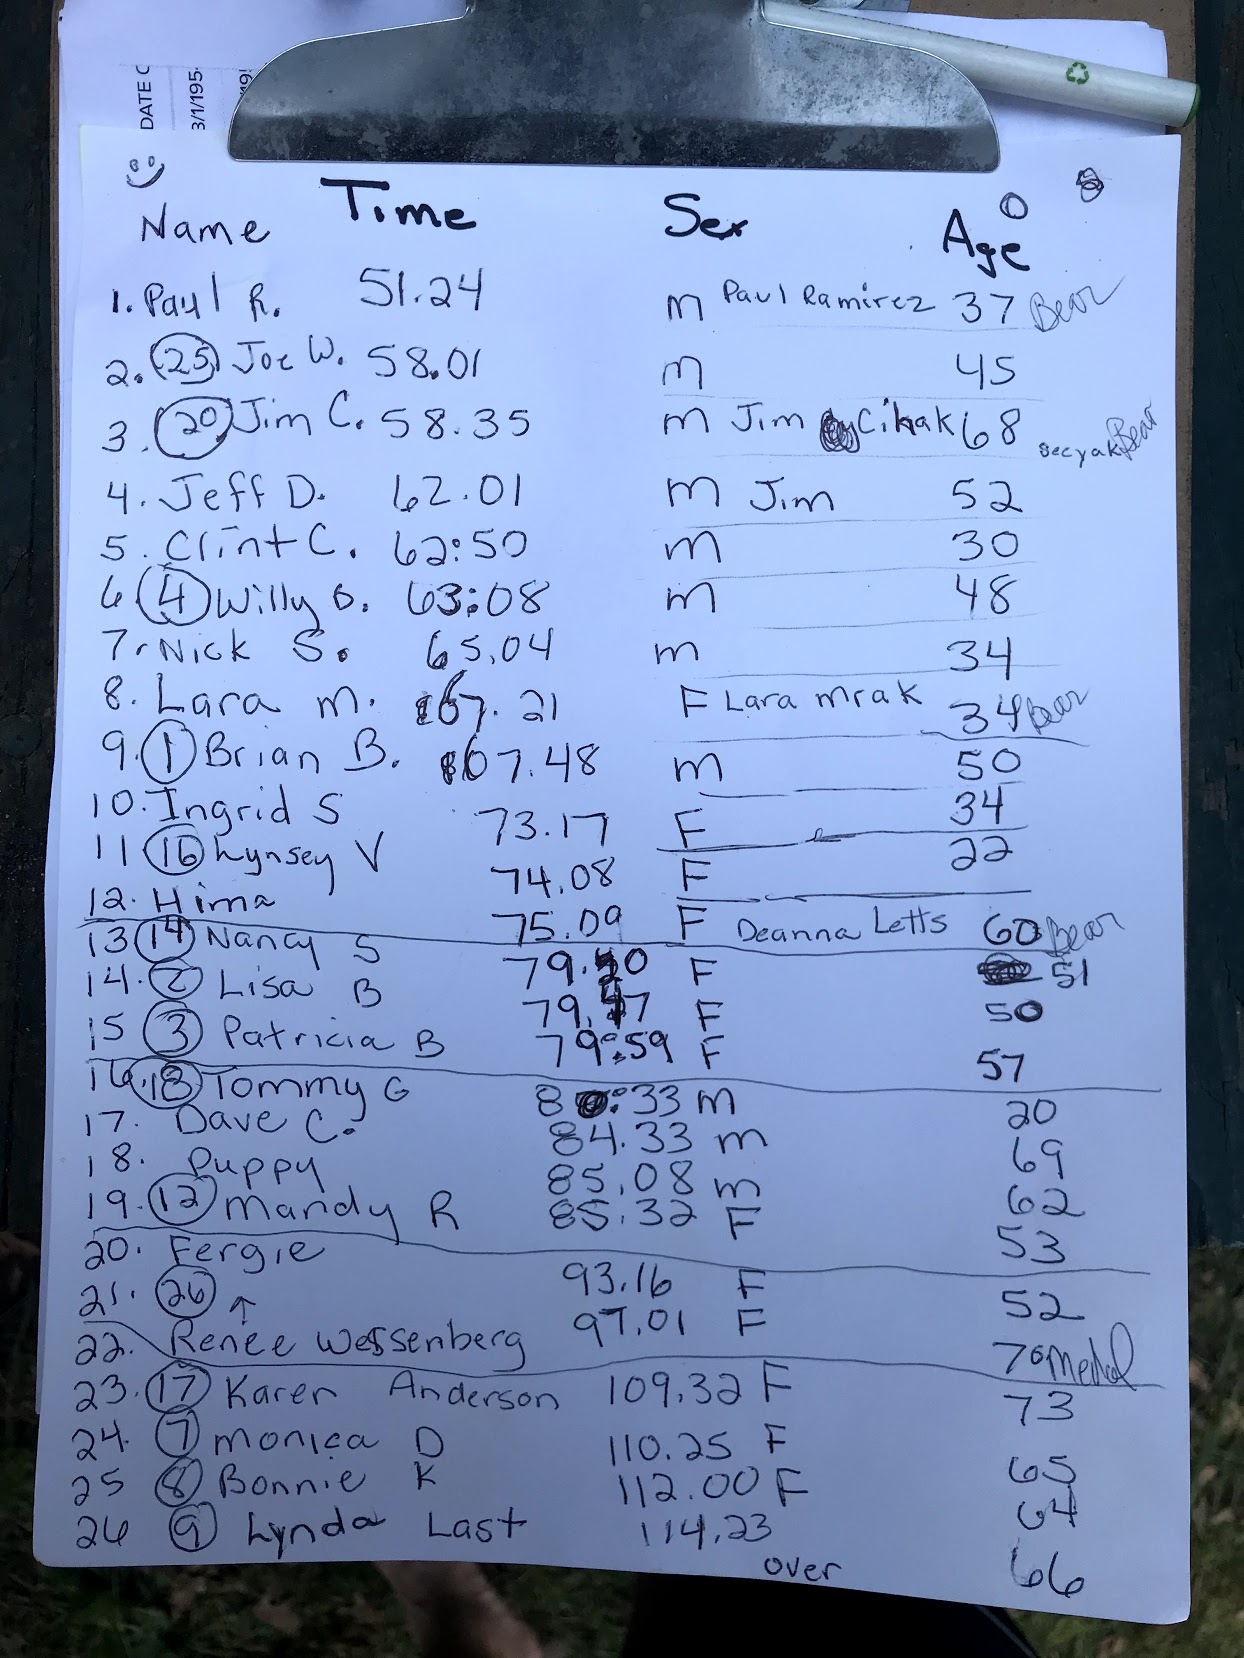 DATE C
3/1/195
Name Time Sex Age
1. Paul R. 51.24 m Paul Ramirez 37 Bear
2. 25 Joe W. 58.01 m 45
3. 20 Jim C. 58.35 m Jim Cihak 68 secyak Bear
4. Jeff D. 62.01 m Jim 52
5. Clint C. 62:50 m 30
6 4 Willy B. 63:08 m 48
7. Nick S. 65.04 m 34
8. Lara m. 67.21 F Lara mrak 34 Bear
9. 1 Brian B. 67.48 m 50
10. Ingrid S 73.17 F 34
11 16 Lynsey V 74.08 F 22
12. Hima 75.09 F Deanna Letts 60 Bear
13 14 Nancy S 79. F 51
14. 2 Lisa B 79. F 50
15 3 Patricia B 79:59 F 57
16. 13 Tommy G 8 :33 m 20
17. Dave C. 84.33 m 69
18. Puppy 85.08 m 62
19. 12 Mandy R 85.32 F 53
20. Fergie 93.16 F 52
21. 26 ↑ 97.01 F
22. Renee Wessenberg 70 Medal
23. 17 Karen Anderson 109.32 F 73
24. 7 monica D 110.25 F 65
25 8 Bonnie K 112.00 F 64
26 9 Lynda Last 114.23 66
over